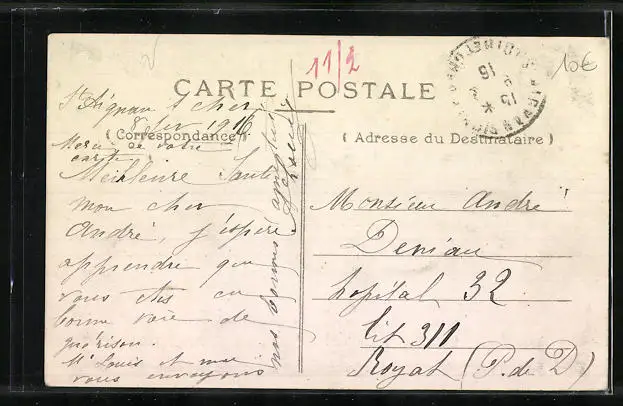 11/2
10€
CARTE POSTALE
St Aignan s cher
8 fev 1916
( Correspondance )
( Adresse du Destinataire )
Merci de votre
carte
Meilleure Santé
mon cher
André, j'espère
apprendre que
vous êtes en
bonne voie de
guérison.
Mr Louis et moi
vous envoyons
nos bonnes amitiés
Monsieur André
Deniau
hopital 32
lit 311
Royat (P. de D)